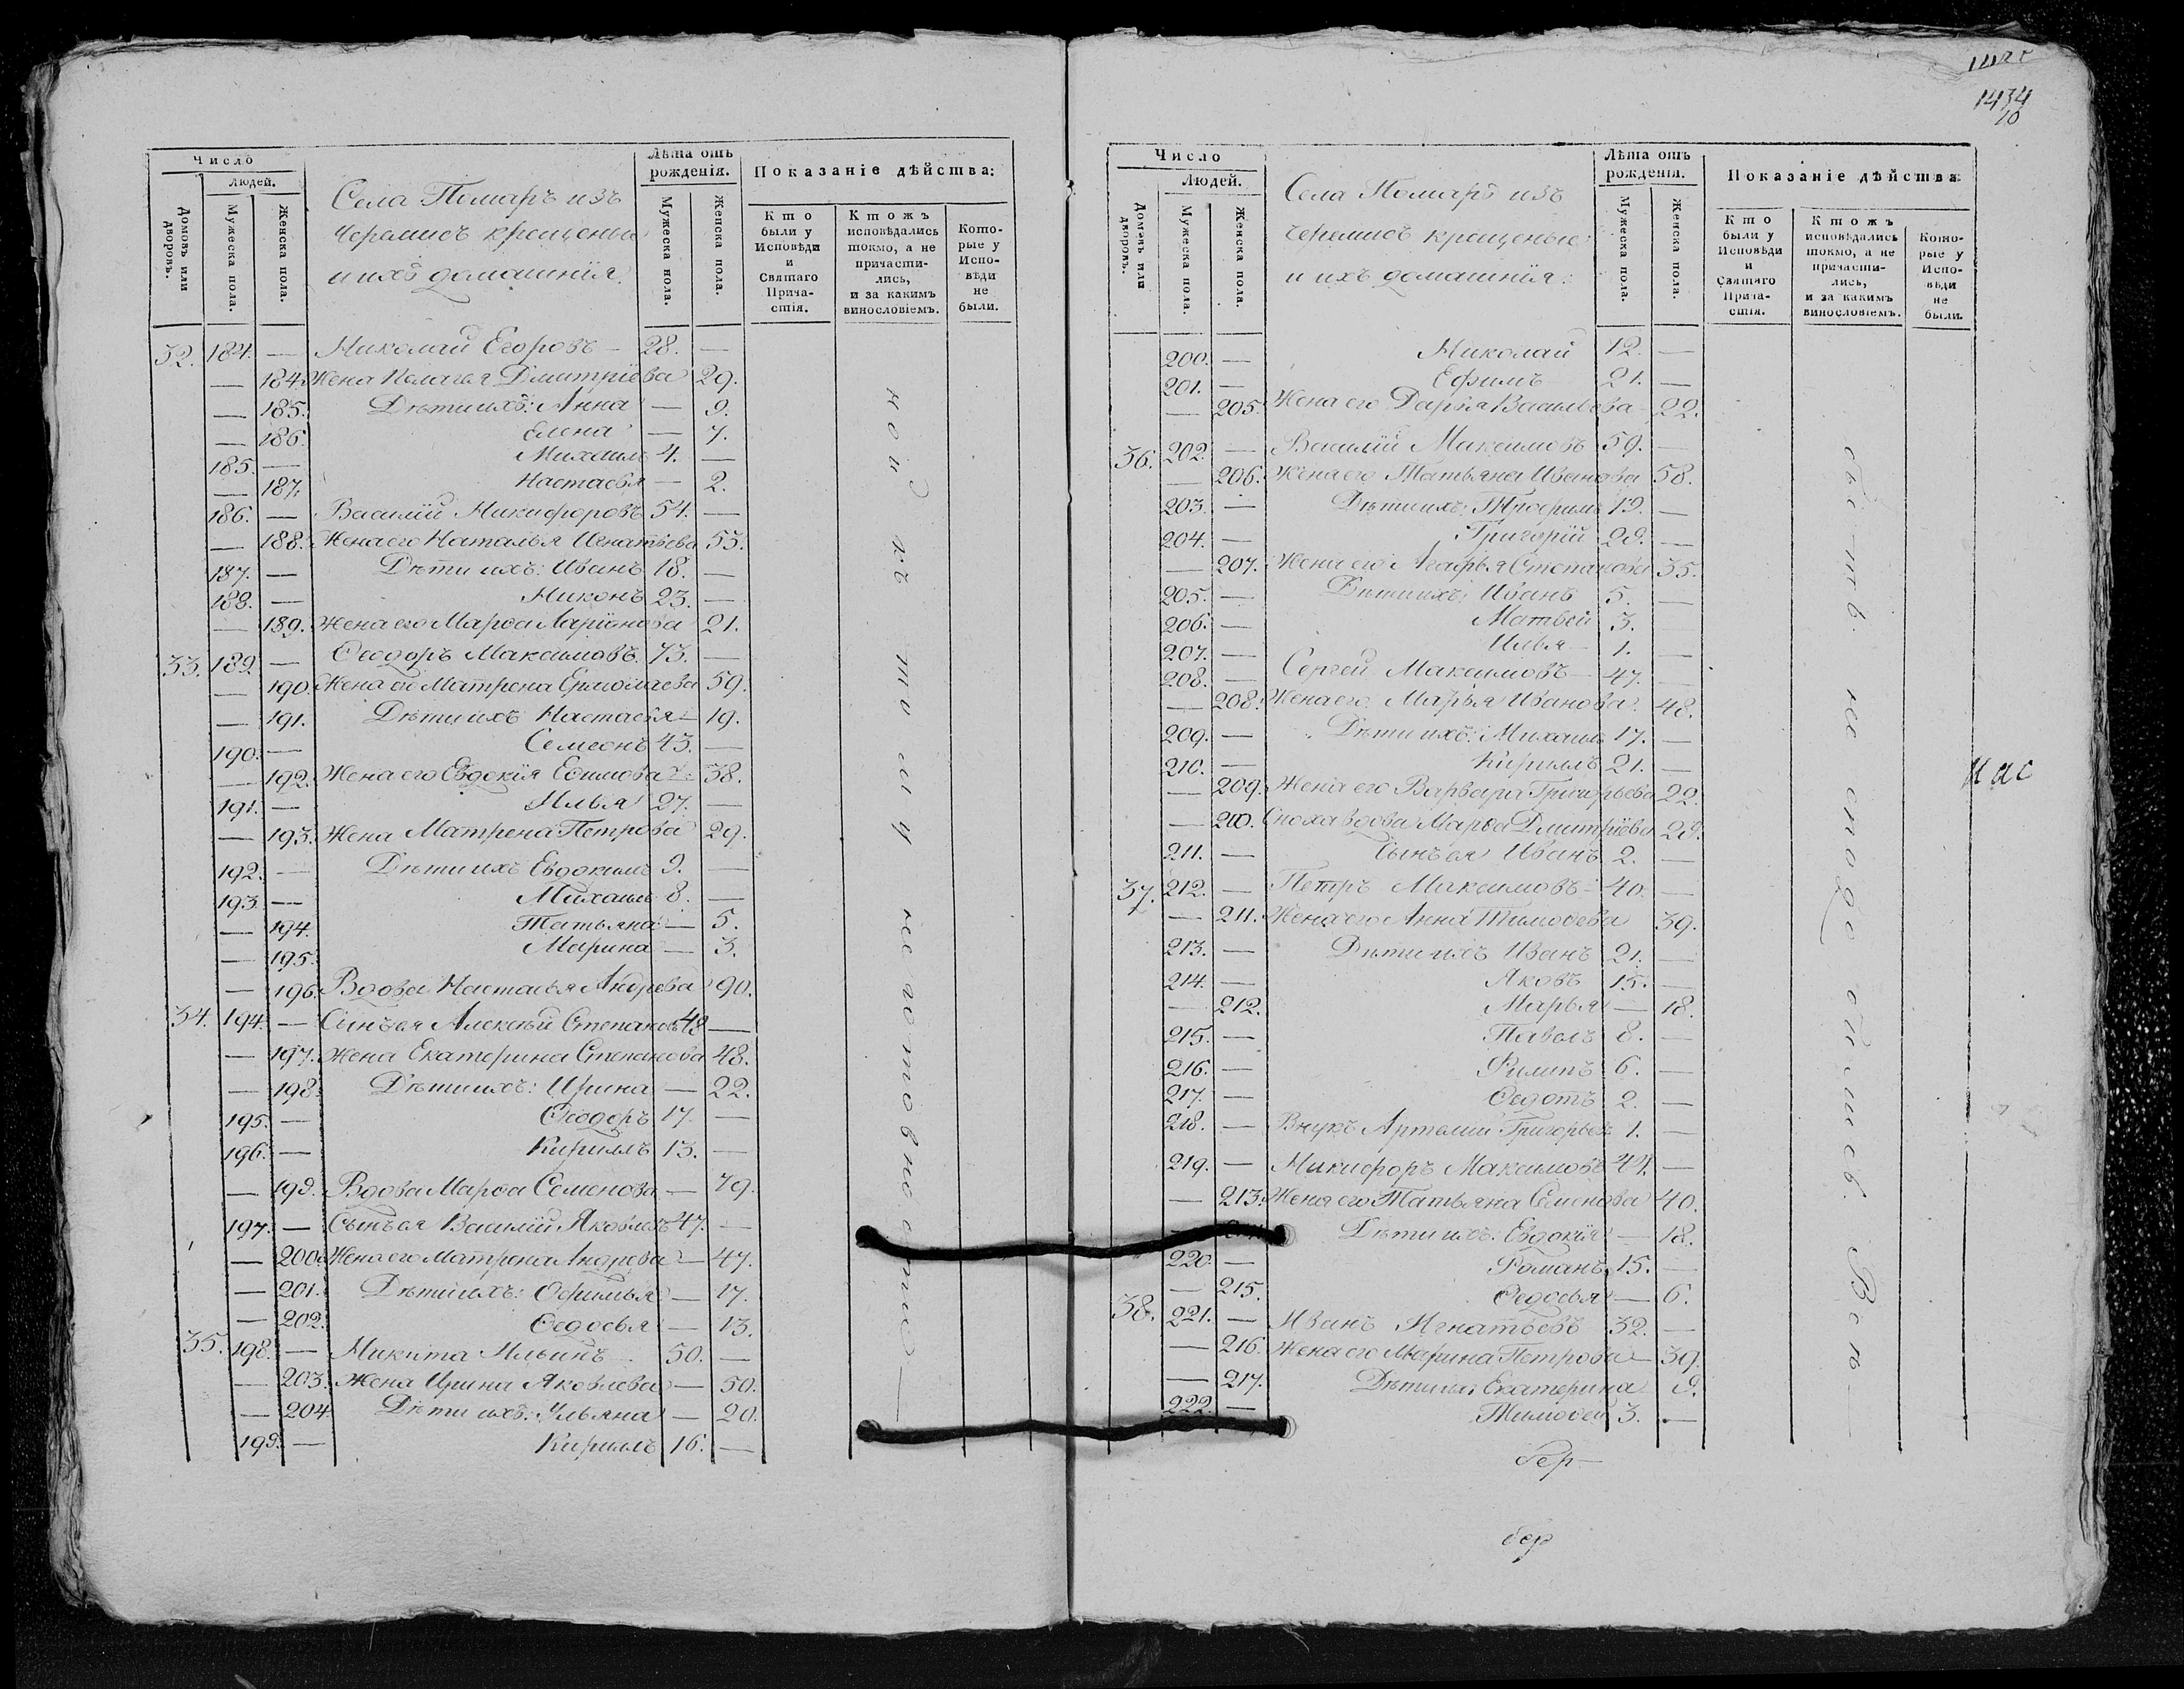 Число
Людей.
Домовъ или дворовъ.
Мужеска пола.
Женска пола.
Села Помаръ изъ
Черемисъ крещеныя
и ихъ домашнія.
Лѣта отъ рожденія.
Мужеска пола.
Женска пола.
Показаніе дѣйства:
Кто были у Исповѣди и Святаго Причастія.
Ктожъ исповѣдались токмо, а не причастились, и за какимъ винословіемъ.
Которые у Исповѣди не были.
32. 184. — Николай Егоровъ — 28. —
— 184. Жена Пелагья Дмитріева 29.
— 185. Дѣти ихъ: Анна — 9.
— 186. Елена — 7.
185. — Михаилъ 4. —
— 187. Настасья — 2.
186. — Василій Никифоровъ 54. —
— 188. Жена его Наталья Игнатьева 53.
187. — Дѣти ихъ: Иванъ 18. —
188. — Никонъ 23. —
— 189. Жена его Марѳа Ларіонова 21.
33. 189. — Ѳеодоръ Максимовъ. 73. —
— 190. Жена его Матрена Ермолаева 59.
— 191. Дѣти ихъ Настасья — 19.
190. — Семеонъ 43. —
— 192. Жена его Евдокія Ефимова 38.
191. — Илья 27. —
— 193. Жена Матрена Петрова 29.
192. — Дѣти ихъ Евдокимъ 9. —
193. — Михаилъ 8. —
— 194. Татьяна — 5.
— 195. Марина — 3.
— 196. Вдова Настасья Андрева 90.
34. 194. — Сынъ ея Алексѣй Степановъ 48 —
— 197. Жена Екатерина Степанова 48.
— 198. Дѣти ихъ: Ирина — 22.
195. — Ѳеодоръ 17. —
196. — Кириллъ 13. —
— 199. Вдова Марѳа Семенова — 79.
197. — Сынъ ея Василій Яковлевъ 47. —
— 200. Жена его Матрена Андрева — 47.
— 201. Дѣти ихъ: Офимья — 17.
— 202. Ѳедосья — 13.
35. 198. — Микита Ильинъ 50. —
— 203. Жена Ирина Яковлева — 50.
— 204. Дѣти ихъ: Ульяна — 20.
199. — Кириллъ 16. —
1434
10
Число
Людей.
Домовъ или дворовъ.
Мужеска пола.
Женска пола.
Села Помаръ изъ
черемисъ крещеные
и ихъ домашнія:
Лѣта отъ рожденія.
Мужеска пола.
Женска пола.
Показаніе дѣйства
Кто были у Исповѣди и Святаго Причастія.
Ктожъ исповѣдались токмо, а не причастились, и за какимъ винословіемъ.
Которые у Исповѣди не были.
200. — Николай 12. —
201. — Ефимъ 21. —
— 205. Жена его Дарья Васильева 22.
36. 202. — Василій Максимовъ 59. —
— 206. Жена его Татьяна Иванова 58.
203. — Дѣти ихъ: Трофимъ 19. —
204. — Григорій 29. —
— 207. Жена его Агафья Степанова 35.
205. — Дѣти ихъ: Иванъ 5. —
206. — Матвей 3. —
207. — Илья 1. —
208. — Сергей Максимовъ 47. —
— 208. Жена его Марья Иванова 48.
209. — Дѣти ихъ: Михаилъ 17. —
210. — Кириллъ 21. —
— 209. Жена его Варвара Григорьева 22.
— 210. Сноха вдова Марѳа Дмитріева 29.
211. — Сынъ ея Иванъ 2. —
37. 212. — Петръ Максимовъ 40. —
— 211. Жена его Анна Тимоѳева 39.
213. — Дѣти ихъ Иванъ 21. —
214. — Яковъ 15. —
— 212. Марья — 18.
215. — Павелъ 8. —
216. — Филипъ 6. —
217. — Ѳедотъ 2. —
218. — Внукъ Артемій Григорьевъ 1. —
219. — Никифоръ Максимовъ 44. —
— 213. Жена его Татьяна Семенова 40.
Дѣти ихъ: Евдокія — 18.
220. — Романъ 15. —
— 215. Ѳедосья — 6.
38. 221. — Иванъ Игнатьевъ 32. —
— 216. Жена его Марина Петрова — 39.
— 217. Дѣти ихъ Екатерина 9.
222. — Тимоѳей 3. —